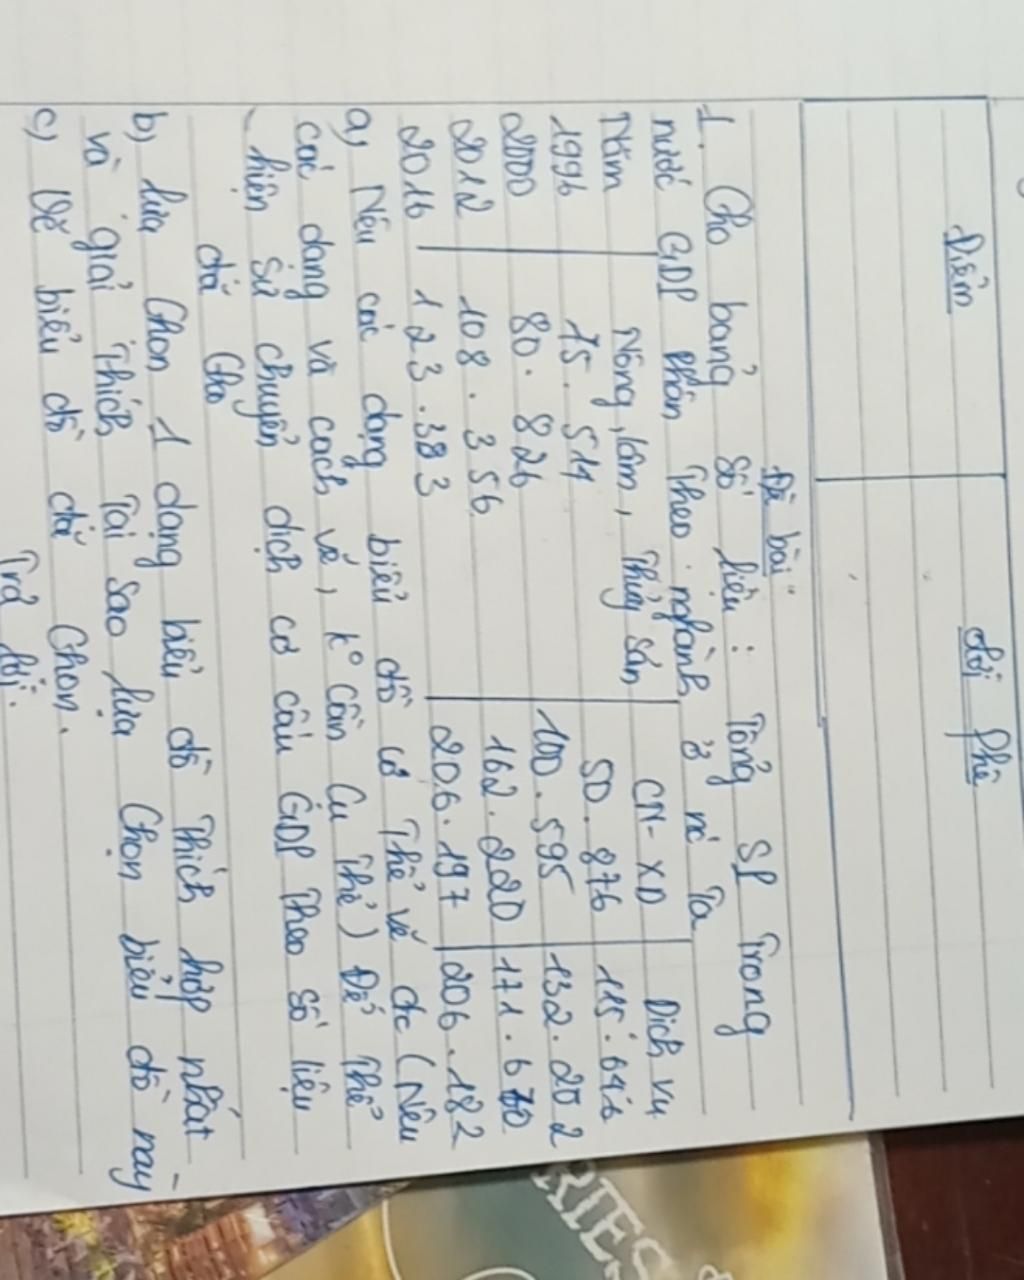 Điểm Lời phê
Đề bài
1. Cho bảng số liệu: Tổng SP Trong
nước GDP phân Theo nghành ở nc Ta
Năm Nông, lâm, Thủy sản CN-XD Dịch vụ
1996 75.514 50.876 115.646
2000 80.826 100.595 132.202
2012 108.356 162.220 171.670
2016 123.383 206.197 206.182
a) Nêu các dạng biểu đồ có Thể vẽ đc (Nêu
các dạng và cách vẽ, k° cần cụ Thể) Để Thể
hiện sự chuyển dịch cơ cấu GDP Theo số liệu
đã cho
b) lựa Chọn 1 dạng biểu đồ Thích hợp nhất
và giải Thích Tại sao lựa Chọn biểu đồ này
c) Vẽ biểu đồ đã Chọn.
Trả lời.
RIES